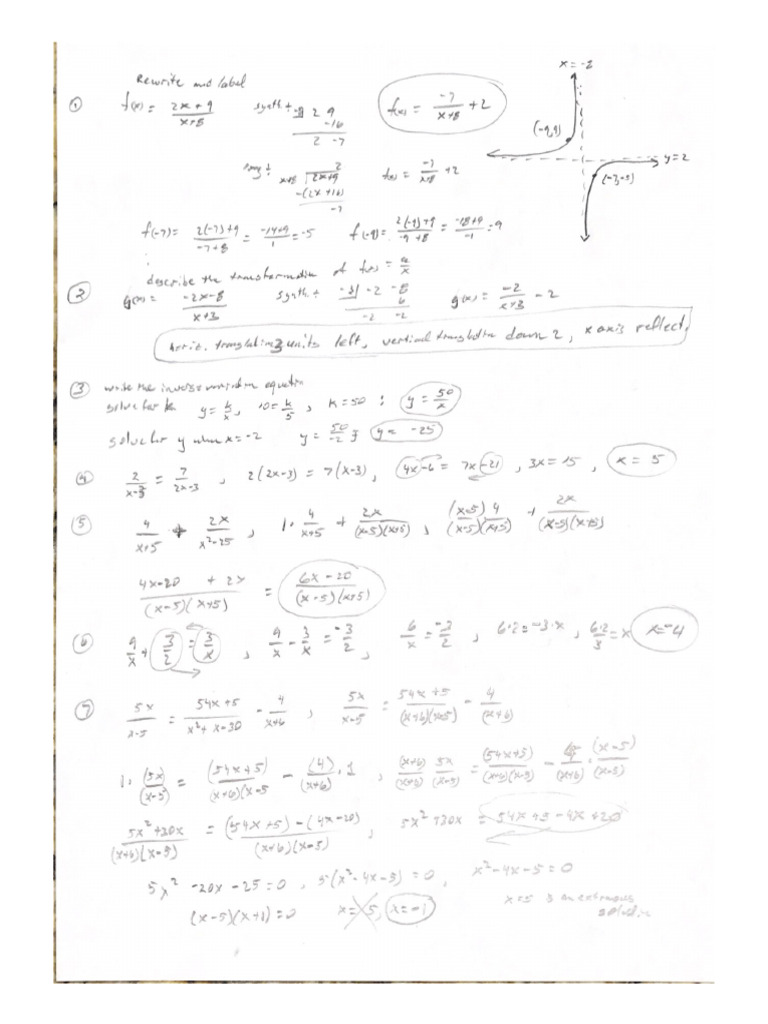 Rewrite and label
x = -2
① f(x) = (2x + 9)/(x+8) synth ÷ -8| 2 9
-16
2 -7
f(x) = -7/(x+8) + 2
(-9,9)
y = 2
(-7,-5)
long ÷ x+8 | 2x+9
2
-(2x+16)
-7
f(x) = -7/(x+8) + 2
f(-7) = (2(-7)+9)/(-7+8) = (-14+9)/1 = -5 f(-9) = (2(-9)+9)/(-9+8) = (-18+9)/-1 = 9
describe the transformation of f(x) = a/x
② g(x) = (-2x-8)/(x+3) synth ÷ -3| -2 -8
6
-2 -2
g(x) = -2/(x+3) - 2
horiz. translation 3 units left, vertical translation down 2, x axis reflect.
③ write the inverse variation equation
solve for k y = k/x, 10 = k/5, k = 50 : y = 50/x
solve for y when x = -2 y = 50/-2 ; y = -25
④ 2/(x-3) = 7/(2x-3), 2(2x-3) = 7(x-3), 4x-6 = 7x-21, 3x = 15, x = 5
⑤ 4/(x+5) + 2x/(x²-25), 1 · 4/(x+5) + 2x/((x-5)(x+5)), (x-5)4/((x-5)(x+5)) + 2x/((x-5)(x+5))
(4x-20 + 2x)/((x-5)(x+5)) = (6x-20)/((x-5)(x+5))
⑥ 9/x + 3/2 = 3/x, 9/x - 3/x = -3/2, 6/x = -3/2, 6·2 = -3·x, 6·2/3 = x x = -4
⑦ 5x/(x-5) = (54x+5)/(x²+x-30) - 4/(x+6), 5x/(x-5) = (54x+5)/((x+6)(x-5)) - 4/(x+6)
1 · (5x)/(x-5) = (54x+5)/((x+6)(x-5) - (4)/(x+6) · 1, (x+6)/(x+6) 5x/(x-5) = (54x+5)/((x+6)(x-5)) - 4/(x+6) · (x-5)/(x-5)
(5x²+30x)/((x+6)(x-5)) = ((54x+5)-(4x-20))/((x+6)(x-5)), 5x²+30x = 54x+5-4x+20
5x² -20x -25 = 0, 5(x²-4x-5) = 0, x²-4x-5 = 0
(x-5)(x+1) = 0 x = 5, x = -1
x=5 is an extraneous
solution